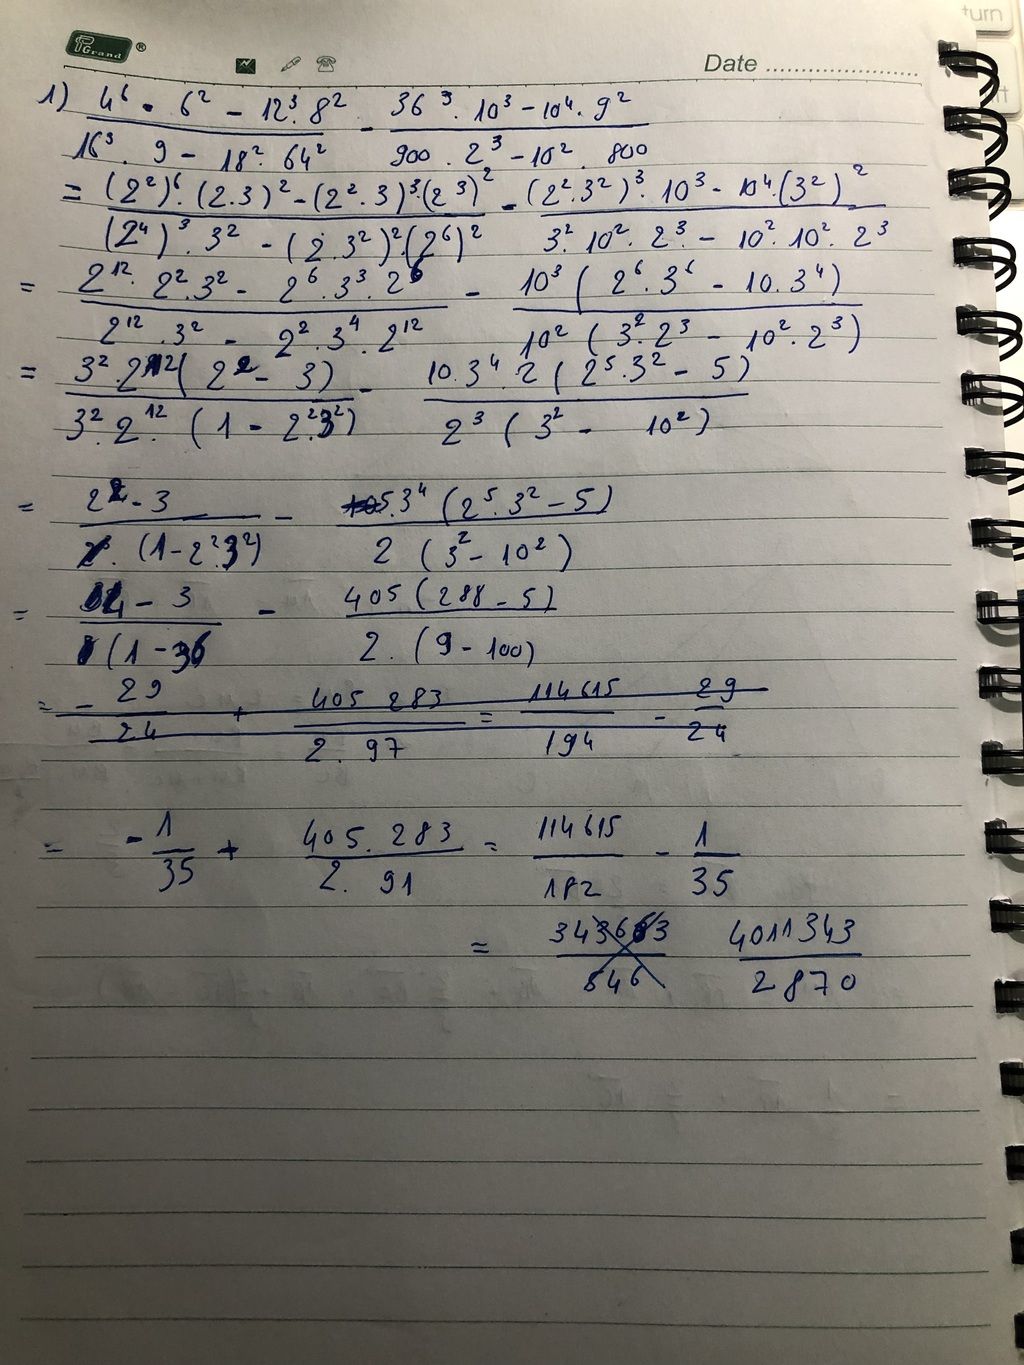 turn
Grand ®
Date ........................
1) 4⁶ . 6² - 12³. 8² / 16³ . 9 - 18². 64² - 36³ . 10³ - 10⁴. 9² / 900 . 2³ - 10² . 800
= (2²)⁶. (2.3)² - (2². 3)³.(2³)² / (2⁴)³. 3² - (2.3²)².(2⁶)² - (2².3²)³. 10³ - 10⁴.(3²)² / 3². 10². 2³ - 10². 10². 2³
= 2¹². 2².3² - 2⁶. 3³. 2⁶ / 2¹². 3² - 2². 3⁴. 2¹² - 10³ ( 2⁶. 3⁶ - 10. 3⁴) / 10² ( 3². 2³ - 10². 2³)
= 3². 2¹² ( 2² - 3) / 3². 2¹². (1 - 2².3²) - 10. 3⁴. 2 ( 2⁵. 3² - 5) / 2³ ( 3² - 10²)
= 2² - 3 / . (1 - 2².3²) - 5.3⁴ (2⁵. 3² - 5) / 2 (3² - 10²)
= 4 - 3 / (1 - 36 - 405 (288 - 5) / 2. (9 - 100)
= - 29 / 24 + 405 283 / 2. 97 = 114615 / 194 - 29 / 24
= - 1 / 35 + 405. 283 / 2. 91 = 114615 / 182 - 1 / 35
= 4011343 / 2870